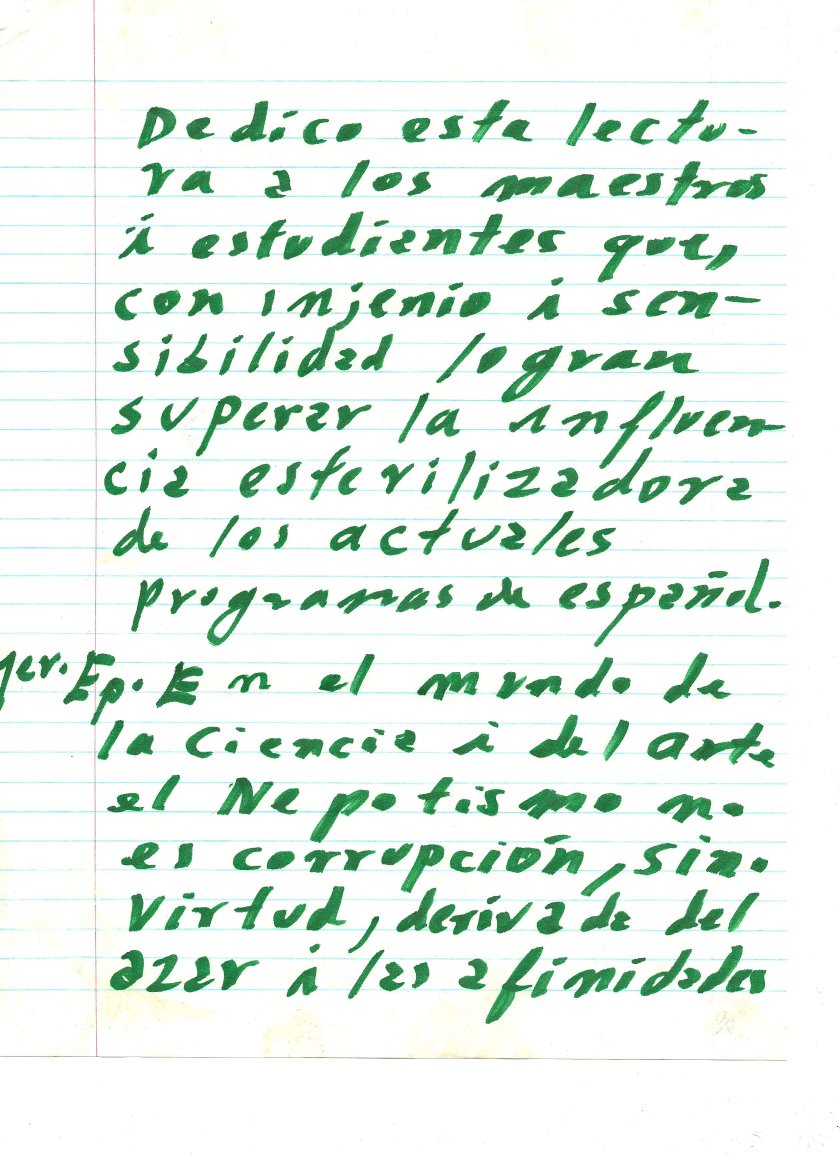 Dedico esta lectu-
ra a los maestros
i estudiantes que,
con injenio i sen-
sibilidad logran
superar la influen-
cia esterilizadora
de los actuales
programas de español.
1er. Ep. En el mundo de
la Ciencia i del arte
el Nepotismo no
es corrupción, sino
Virtud, derivada del
azar i las afinidades